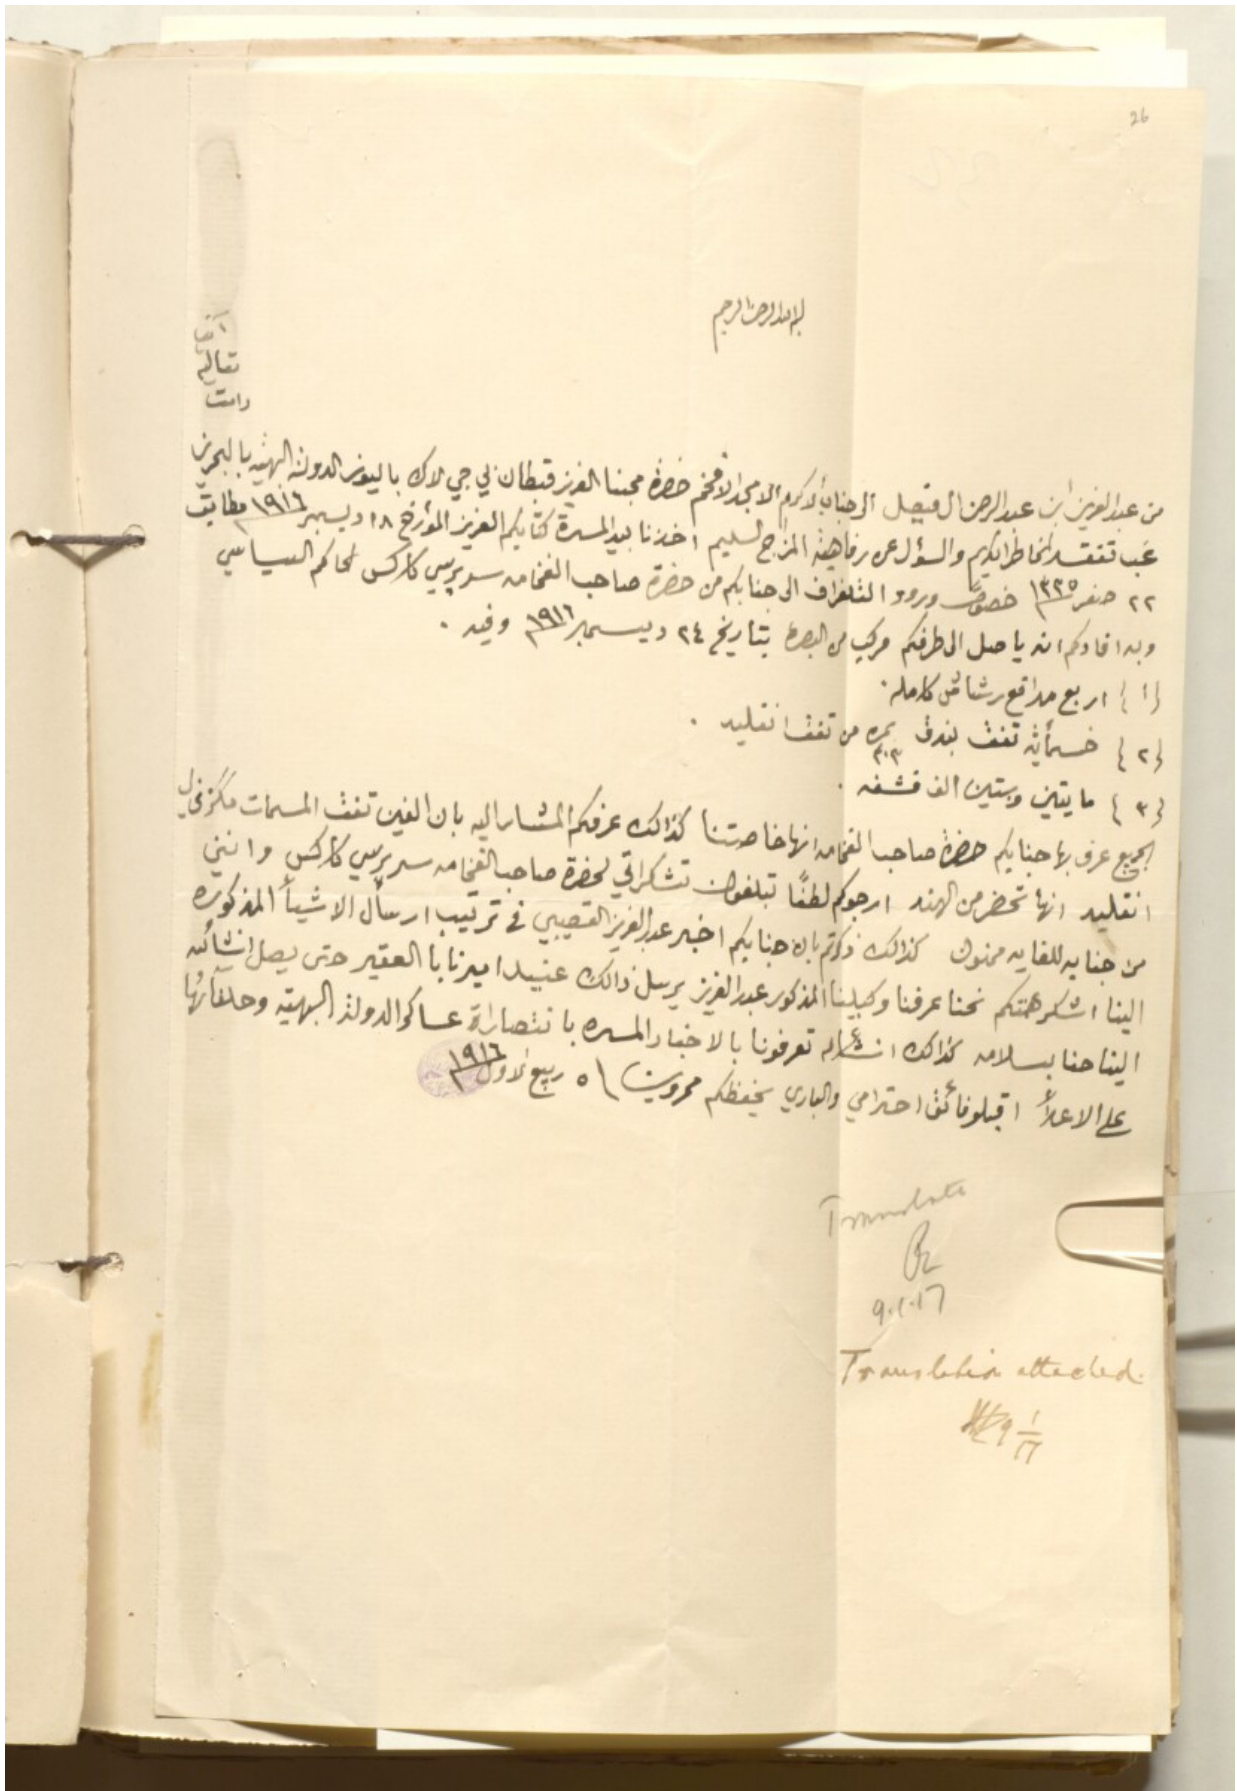 26
بسم الله الرحمن الرحيم
تعاليم
دامت
من عبد العزيز ابن عبد الرحمن ال فيصل الى جناب الاكرم الامجد الافخم حضرة محبنا العزيز قبطان بي جي لاك باليوز الدولة البهية بالبحرين
غب تفقد لخاطرالكريم والسؤل عن رفاهية المزاج السليم اخذنا بيد المسرة كتابكم العزيز المؤرخ ١٨ ديسمبر ١٩١٦ مطابق
٢٢ صفر ١٣٣٥ خصوصًا ورود التلغراف الى جنابكم من حضرة صاحب الفخامه سر پرسي كاركس الحاكم السياسي
وبه افادكم انه ياصل الى طرفكم مركب من البصرة بتاريخ ٢٤ ديسمبر ١٩١٦ وفيه .
{١} اربع مدافع رشاش كامله .
{٢} خسمأية تفق بندق نمره ٣٠٣ من تفق انقليد .
{٣} مايتين وستين الف فشقه .
الجميع عرف بها جنابكم حضرة صاحب الفخامه انها خاصتنا كذالك عرفكم المشار اليه بان الفين تفق المسمات مكزقل
انقليد انها تحضر من الهند ارجوكم لطفًا تبلغون تشكراتي لحضرة صاحب الفخامه سر پرسي كاركس وانني
من جنابه للغايه ممنون كذالك ذكرتم بان جنابكم اخبر عبد العزيز القصيبي في ترتيب ارسأل الاشيأ المذكوره
الينا اشكر همتكم نحنا عرفنا وكيلنا المذكور عبد العزيز يرسل ذالك عنيد اميرنا با العقير حتى يصل انشألله
الينا حنا بسلامه كذالك انشألله تعرفونا بالاخبار المسره بانتصاراة عساكر الدولة البهية وحلفائها
على الاعدأ اقبلو فائق احترامي والباري يحفظكم محروسين \ ٥ ربيع الاول ١٩١٦
Translate
9.1.17
Translation attached.
9 1/17